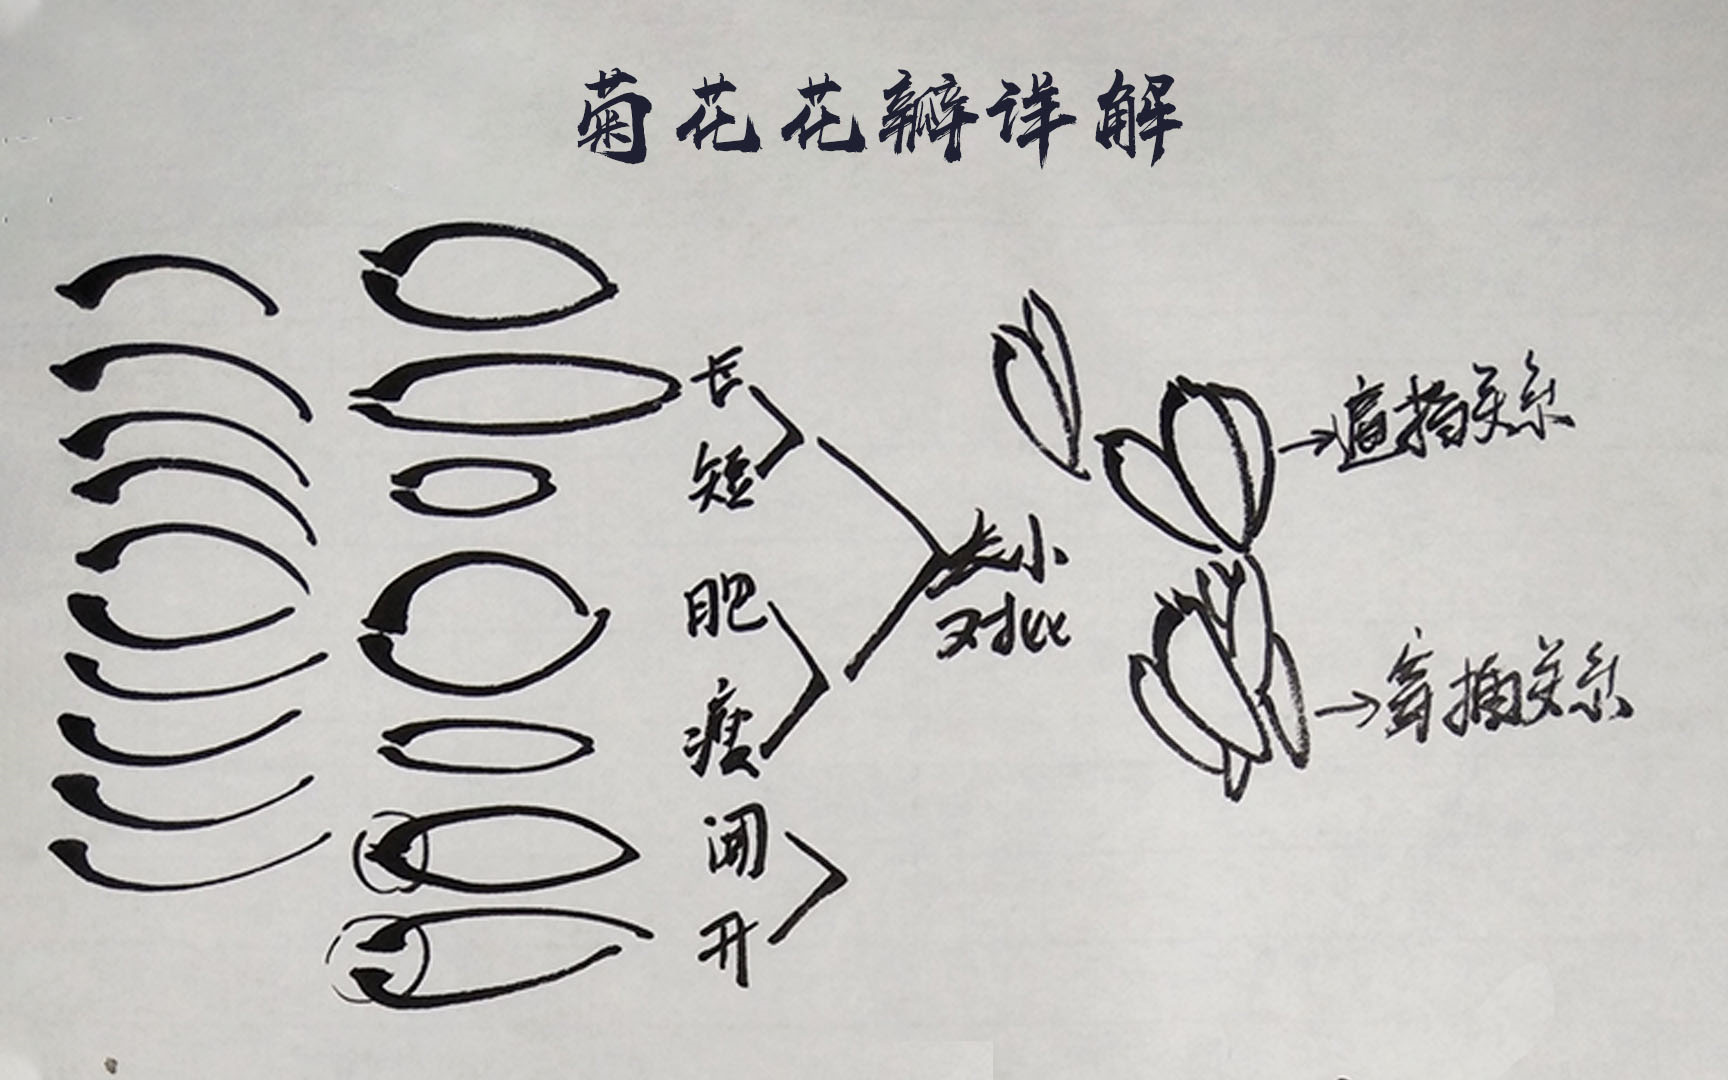 菊花花瓣详解
长
短
肥
瘦
闭
开
大小
对比
关系
穿插关系